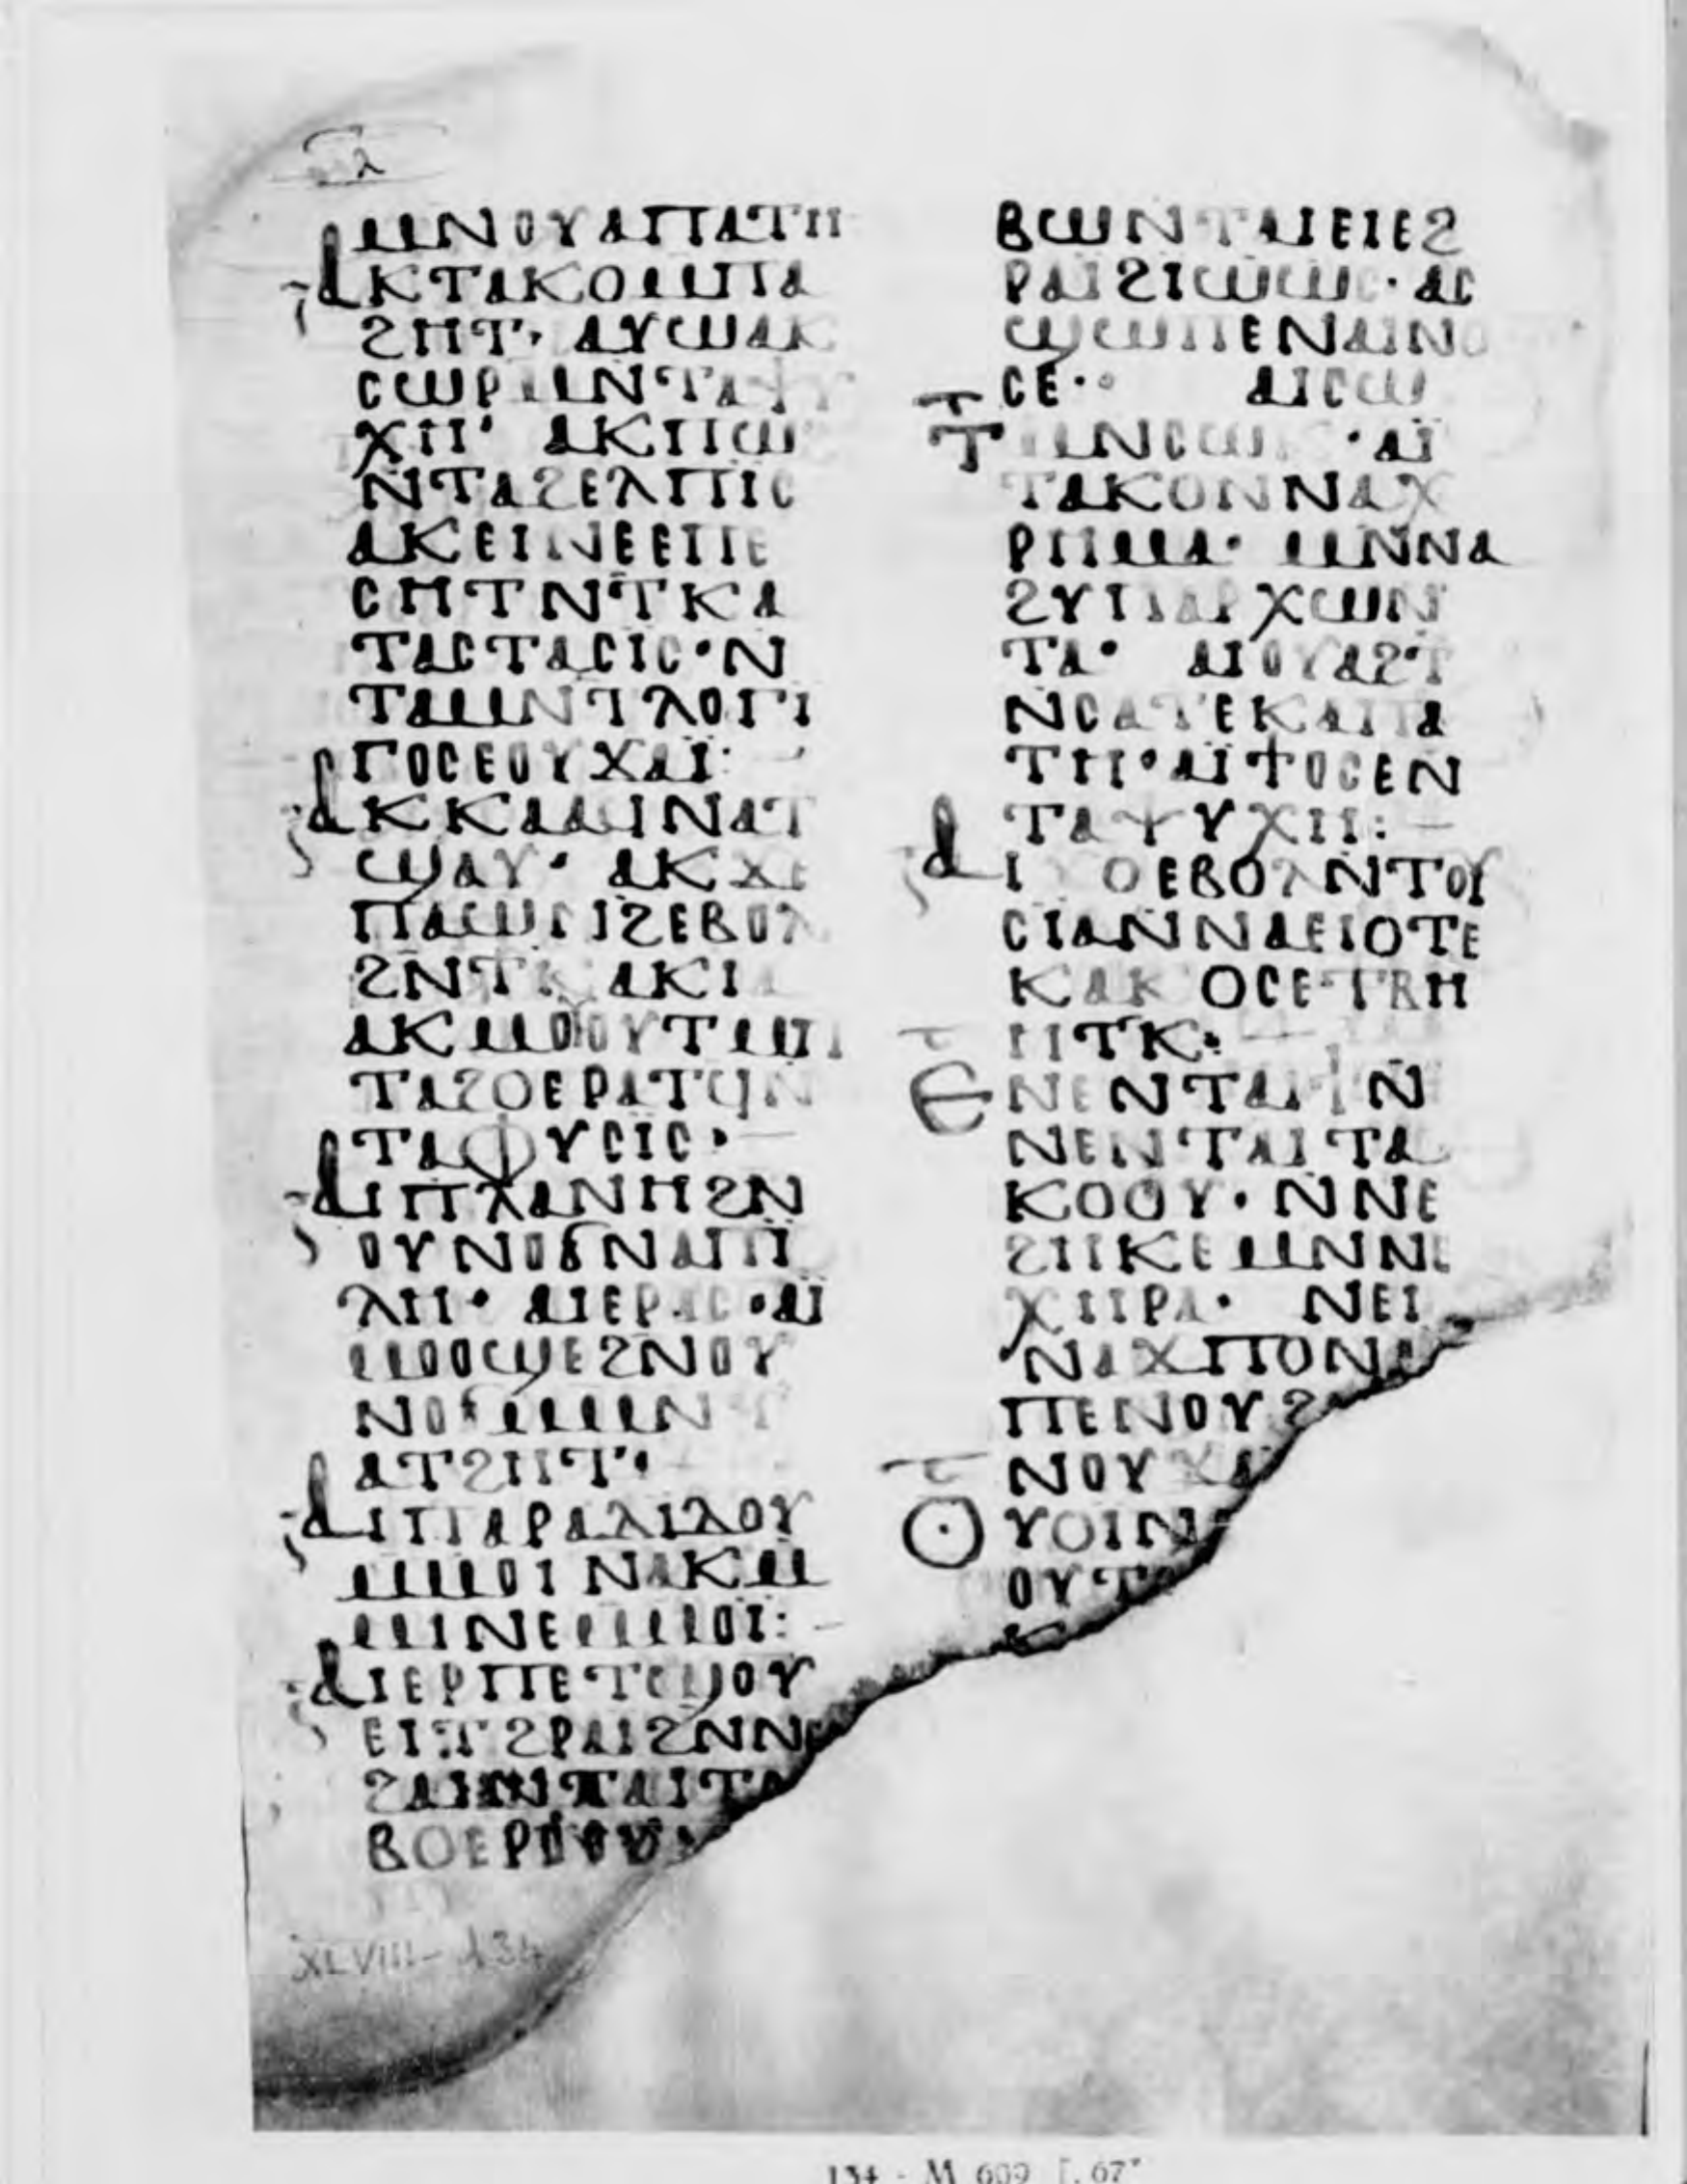 ⲙⲛⲟⲩⲁⲡⲁⲧⲏ
ⲁⲕⲧⲁⲕⲟⲙⲡⲁ
ϩⲏⲧ· ⲁⲩⲱⲁⲕ
ⲥⲱⲣⲙⲛⲧⲁⲯⲩ
ⲭⲏ· ⲁⲕⲡⲱ
ⲛⲧⲁϩⲉⲗⲡⲓⲥ
ⲁⲕⲉⲓⲛⲉⲉⲡⲉ
ⲥⲏⲧⲛⲧⲕⲁ
ⲧⲁⲥⲧⲁⲥⲓⲥ·ⲛ
ⲧⲁⲙⲛⲧⲗⲟⲅⲓ
ⲅⲟⲥⲉⲟⲩⲭⲁⲓ̈:
ⲁⲕⲕⲁⲁⲓⲛⲁⲧ
ϣⲁⲩ· ⲁⲕϫⲉ
ⲡⲁⲱⲛϩⲉⲃⲟⲗ
ϩⲛⲧⲕⲁⲕⲓⲁ
ⲁⲕⲙⲟⲟⲩⲧⲙⲡ
ⲧⲁϩⲟⲉⲣⲁⲧϥⲛ
ⲧⲁⲫⲩⲥⲓⲥ·
ⲁⲓⲡⲗⲁⲛⲏϩⲛ
ⲟⲩⲛⲟϭⲛⲁⲡⲓ
ⲗⲏ· ⲁⲓⲉⲣⲁⲥ·ⲁⲓ̈
ⲙⲟⲟϣⲉϩⲛⲟⲩ
ⲛⲟϭⲙⲙⲛⲧ
ⲁⲧϩⲏⲧ·
ⲁⲓⲡⲁⲣⲁⲗⲓⲗⲟⲩ
ⲙⲙⲟⲓⲛⲁⲕⲙ
ⲙⲓⲛⲉⲙⲙⲟⲓ:
ⲁⲓⲉⲣⲡⲉⲧϣⲟⲩ
ⲉⲓⲧϩⲣⲁⲓϩⲛⲛ
ϩⲁⲓⲛⲧⲁⲓⲧⲁ
ⲃⲟⲉⲣⲟⲟⲩ
ⲃⲱⲛⲧⲁⲓⲉⲓⲉϩ
ⲣⲁⲓϩⲓⲱⲱⲥ·ⲁⲥ
ϣⲱⲡⲉⲛⲁⲓⲛⲟ
ⲥⲉ· ⲁⲓⲥⲱ
ⲧⲙⲛⲥⲱⲕ·ⲁⲓ̈
ⲧⲁⲕⲟⲛⲛⲁⲭ
ⲣⲏⲙⲁ· ⲙⲛⲛⲁ
ϩⲩⲡⲁⲣⲭⲱⲛ
ⲧⲁ· ⲁⲓⲟⲩⲁϩⲧ
ⲛⲥⲁⲧⲉⲕⲁⲡⲁ
ⲧⲏ·ⲁⲓ̈ϯⲟⲥⲉⲛ
ⲧⲁⲯⲩⲭⲏ:
ⲁⲓϫⲟⲉⲃⲟⲗⲛⲧⲟⲩ
ⲥⲓⲁⲛⲛⲁⲉⲓⲟⲧⲉ
ⲕⲁⲕⲟⲥⲉⲧⲃⲏ
ⲏⲧⲕ:
ⲉⲛⲉⲛⲧⲁⲓϥⲓⲛ
ⲛⲉⲛⲧⲁⲓⲧⲁ
ⲕⲟⲟⲩ·ⲛⲛⲉ
ϩⲏⲕⲉⲙⲛⲛⲉ
ⲭⲏⲣⲁ· ⲛⲉⲓ
ⲛⲁϫⲡⲟⲛⲁ
ⲡⲉⲛⲟⲩϩ
ⲛⲟⲩϫⲁ
ⲑⲩⲟⲓⲛ
ⲟⲩⲧⲟ
ⲕ
XLVIII–134
134 - M 609 F. 67ᵛ